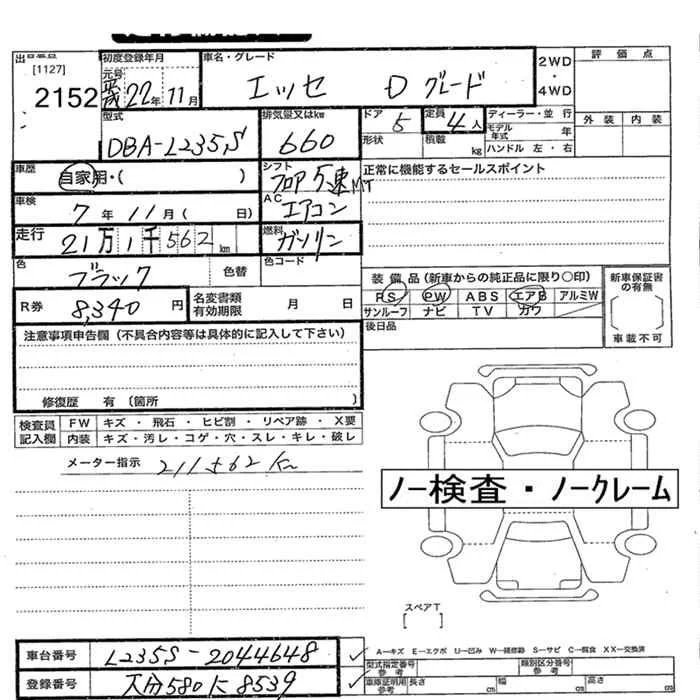 [1127]
2152
初度登録年月
元号
平成 22年 11月
車名・グレード
エッセ Dグレード
2WD・4WD
評価点
外装 内装
型式
DBA-L235S
排気量又はkw
660
ドア 5
形状
定員 4人
積載 kg
ディーラー・並行
モデル年式 年
ハンドル 左・右
車歴
自家用・( )
シフト
フロア 5速MT
正常に機能するセールスポイント
車検
7年 11月( 日)
AC
エアコン
走行
21万1千562km
燃料
ガソリン
色
ブラック
色替
色コード
装備品(新車からの純正品に限り○印)
PS PW ABS エアB アルミW
サンルーフ ナビ TV カワ
新車保証書の有無
車載不可
R券
8,340円
名変書類有効期限 月 日
後日品
注意事項申告欄(不具合内容等は具体的に記入して下さい)
修復歴 有〔箇所 〕
検査員記入欄
FW キズ・飛石・ヒビ割・リペア跡・X要
内装 キズ・汚レ・コゲ・穴・スレ・キレ・破レ
メーター指示 211562km
ノー検査・ノークレーム
スペアT
[ ]
車台番号
L235S-2044648
A-キズ E-エクボ U-凹み W-補修跡 S-サビ C-腐食 XX-交換済
型式指定番号 参考
類別区分番号 参考
登録番号
大分580 に 8539
車庫証明用参考 長さ cm 幅 cm 高さ cm